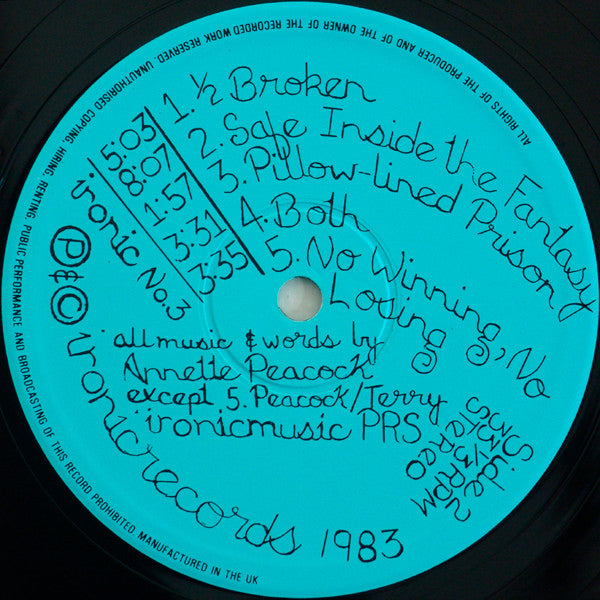 ALL RIGHTS OF THE PRODUCER AND OF THE OWNER OF THE RECORDED WORK RESERVED. UNAUTHORISED COPYING, HIRING, RENTING, PUBLIC PERFORMANCE AND BROADCASTING OF THIS RECORD PROHIBITED. MANUFACTURED IN THE UK
1. ½ Broken
2. Safe Inside the Fantasy
3. Pillow-lined Prison
4. Both
5. No Winning, No
Losing
5:03
8:07
1:57
3:31
3:35
ironic No.3
all music & words by
Annette Peacock
except 5. Peacock/Terry
ironicmusic PRS
Side 2
33 1/3 RPM
STEREO
℗&© ironic records 1983